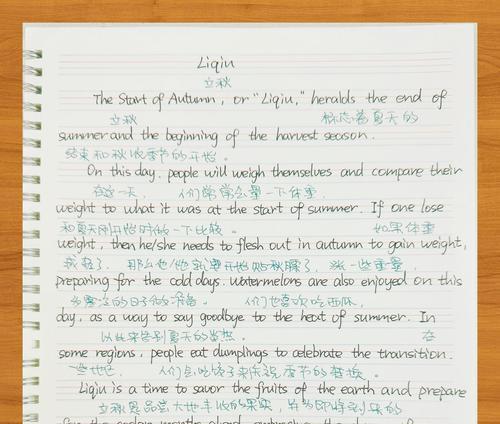 Liqiu
立秋
The Start of Autumn, or "Liqiu," heralds the end of
立秋 标志着夏天的
summer and the beginning of the harvest season.
结束和秋收季节的开始。
On this day, people will weigh themselves and compare their
在这一天, 人们常常会量一下体重
weight to what it was at the start of summer. If one lose
和夏天刚开始时的一下比较。 如果体重
weight, then he/she needs to flesh out in autumn to gain weight,
我轻了, 那么他/她就要开始贴秋膘了, 涨一些重量
preparing for the cold days. Watermelons are also enjoyed on this
为寒冷的日子做准备。 人们也喜欢吃西瓜,
day, as a way to say goodbye to the heat of summer. In
以此来告别夏天的炎热。 在
some regions, people eat dumplings to celebrate the transition.
一些地区, 人们会吃饺子来庆祝季节的替换。
Liqiu is a time to savor the fruits of the earth and prepare
立秋是品尝大地丰收的果实, 并为即将到来的